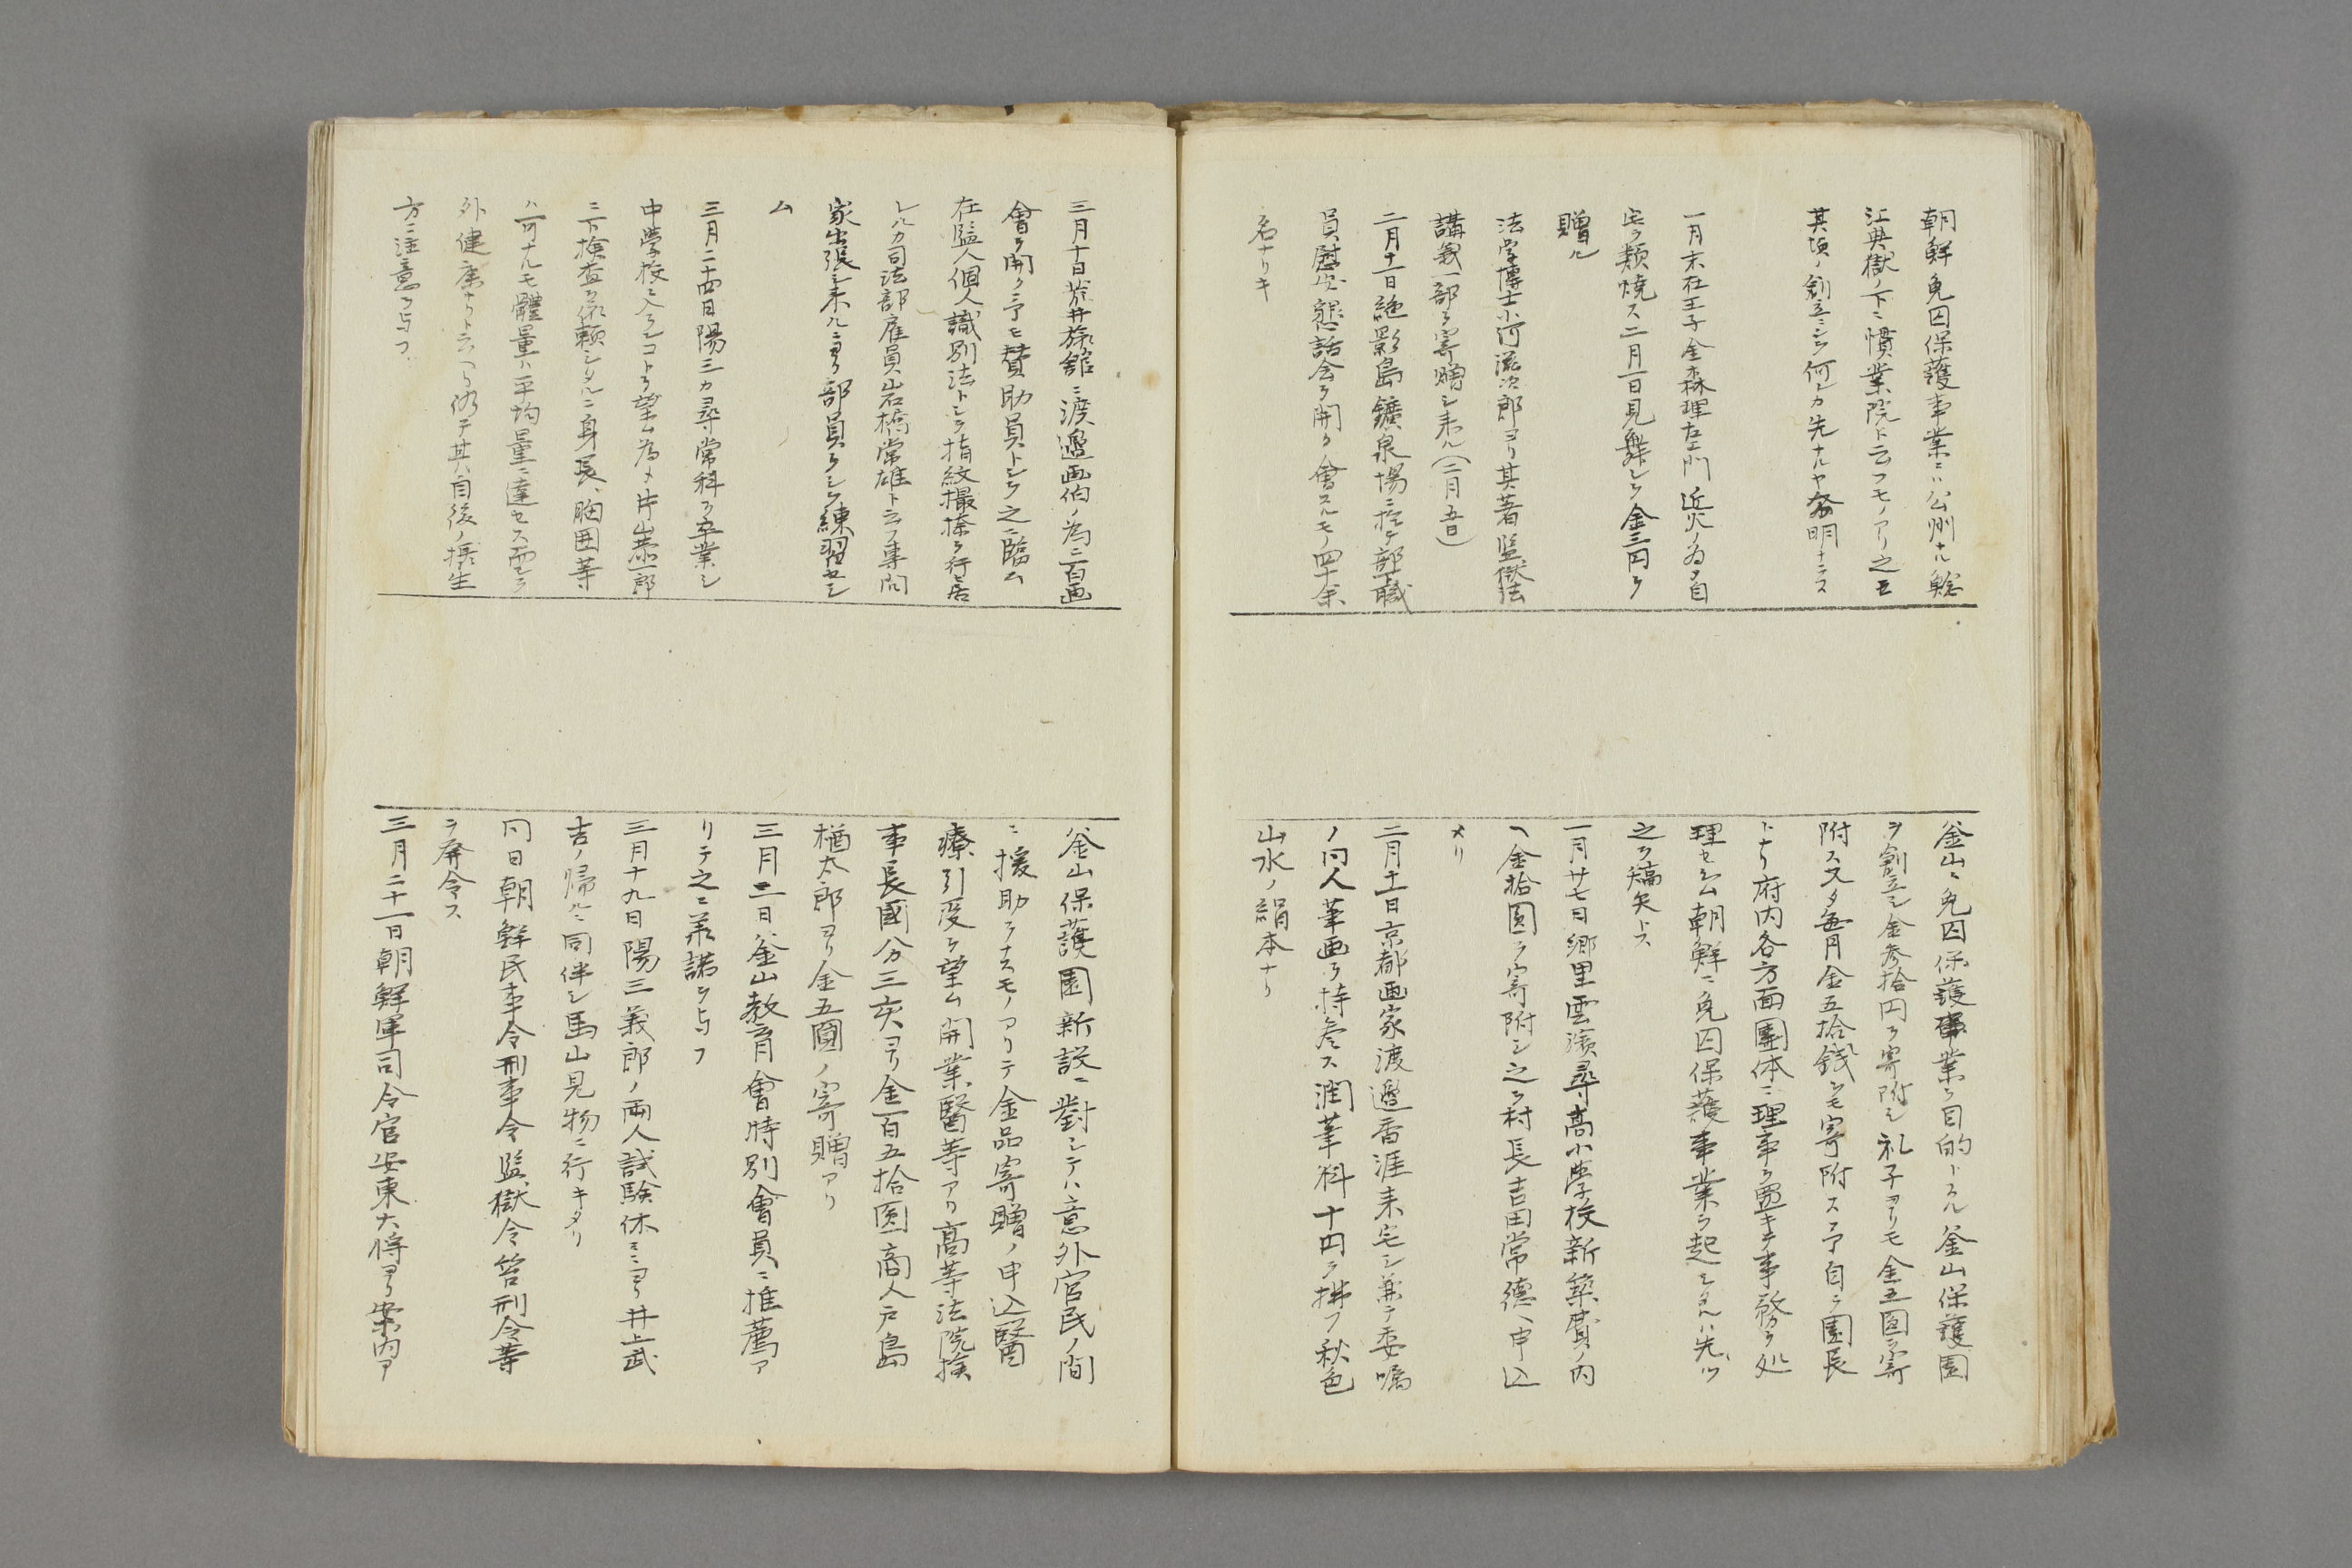 朝鮮免囚保護事業ニハ公州ナル鯰
江典獄ノ下ニ慣業院ト云フモノアリ之モ
其頃ノ創立ニシテ何レカ先ナルヤ発明ナラス
一月末在王子金森理左エ門近火ノ為メ自
宅ヲ類焼ス二月一日見舞シテ金三円ヲ
贈ル
法学博士小河滋次郎ヨリ其著監獄法
講義一部ヲ寄贈シ来ル（二月五日）
二月十一日絶影島鑛泉場ニ於テ部下職
員慰労懇話会ヲ開ク會スルモノ四十余
名ナリキ
釜山ニ免囚保護事業ヲ目的トスル釜山保護園
ヲ創立シ金参拾円ヲ寄附シ礼子ヨリモ金五圓ヲ寄
附ス又タ毎月金五拾銭ツヽモ寄附ス予自ラ園長
トナリ府内各方面團体ニ理事ヲ置キ事務ヲ処
理セシム朝鮮ニ免囚保護事業ヲ起シタルハ先ツ
之ヲ嚆矢トス
一月廿七日郷里雲濱尋高小学校新築費ノ内
ヘ金拾圓ヲ寄附シ之ヲ村長吉田常德ヘ申込
メリ
二月十一日京都画家渡邉香涯来宅シ兼テ委嘱
ノ同人筆画ヲ持参ス潤筆料十円ヲ拂フ秋色
山水ノ絹本ナリ
三月十日荒井旅舘ニ渡邉画伯ノ為ニ百画
會ヲ開ク予モ賛助員トシテ之ニ臨ム
在監人個人識別法トシテ指紋撮捺ヲ行ヒ居
レルカ司法部雇員岩橋常雄ト云フ専門
家出張シ来ルニヨリ部員ヲシテ練習セシ
ム
三月二十四日陽三カ尋常科ヲ卒業シ
中學校ニ入ランコトヲ望ム為メ片山恭一郎
ニ下検査ヲ依頼シタルニ身長、胸囲等
ハ可ナルモ體量ハ平均量ニ達セス而シテ
外健康ナリト云ヘリ仍テ其自後ノ摂生
方ニ注意ヲ与フ
釜山保護園新設ニ對シテハ意外官民ノ間
ニ援助ヲナスモノアリテ金品寄贈ノ申込醫
療引受ヲ望ム開業醫等アリ高等法院検
事長國分三亥ヨリ金百五拾圓商人戸島
楢太郎ヨリ金五圓ノ寄贈アリ
三月二日釜山教育會特別會員ニ推薦ア
リテ之ニ承諾ヲ与フ
三月十九日陽三義郎ノ両人試験休ミニヨリ井上武
吉ノ帰ルニ同伴シ馬山見物ニ行キタリ
同日朝鮮民事令刑事令監獄令笞刑令等
ヲ発令ス
三月二十一日朝鮮軍司令官安東大将ヨリ案内ア